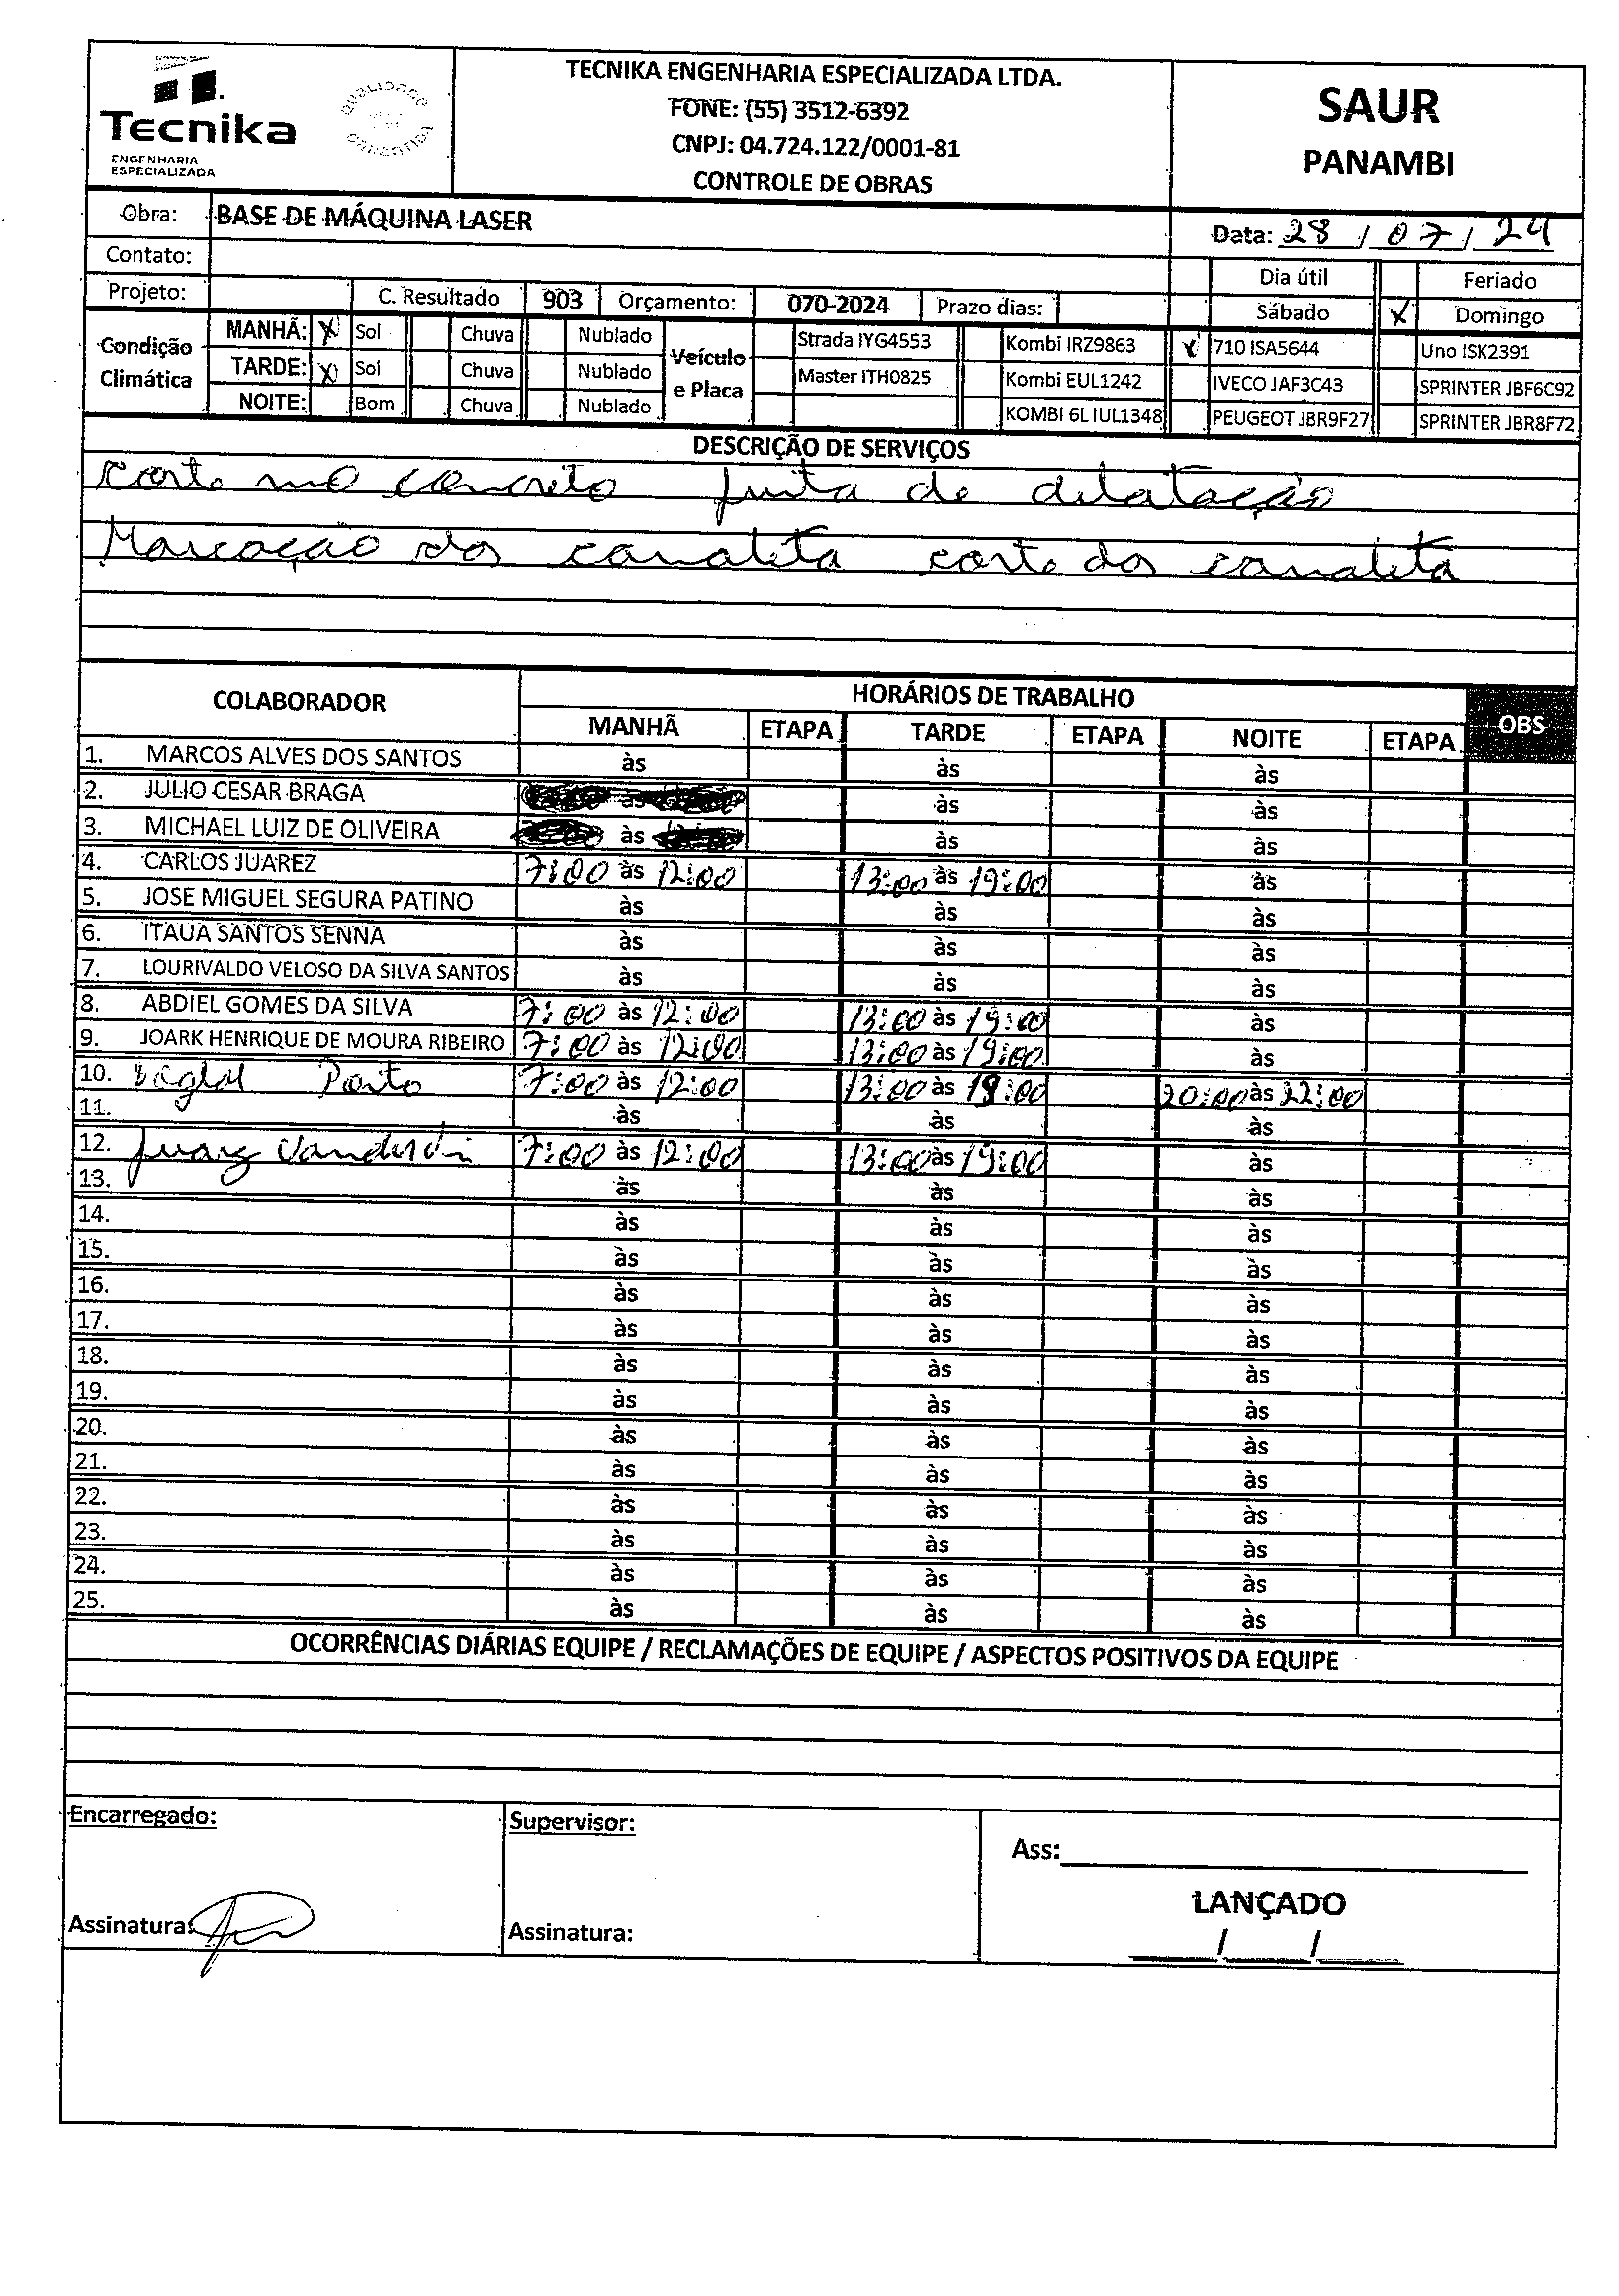 Tecnika
ENGENHARIA
ESPECIALIZADA
TECNIKA ENGENHARIA ESPECIALIZADA LTDA.
FONE: (55) 3512-6392
CNPJ: 04.724.122/0001-81
CONTROLE DE OBRAS
SAUR
PANAMBI
Obra: BASE DE MÁQUINA LASER
Data: 28 / 07 / 24
Contato:
Dia útil Feriado
Projeto: C. Resultado 903 Orçamento: 070-2024 Prazo dias: Sábado X Domingo
Condição Climática
MANHÃ: X Sol Chuva Nublado
TARDE: X Sol Chuva Nublado
NOITE: Bom Chuva Nublado
Veículo e Placa
Strada IYG4553 Kombi IRZ9863 X 710 ISA5644 Uno ISK2391
Master ITH0825 Kombi EUL1242 IVECO JAF3C43 SPRINTER JBF6C92
KOMBI 6L IUL1348 PEUGEOT JBR9F27 SPRINTER JBR8F72
DESCRIÇÃO DE SERVIÇOS
corte no concreto junta de delatação
Marcação dos canaleta corte dos canaleta
COLABORADOR HORÁRIOS DE TRABALHO OBS
MANHÃ ETAPA TARDE ETAPA NOITE ETAPA
1. MARCOS ALVES DOS SANTOS às às às
2. JULIO CESAR BRAGA às às às
3. MICHAEL LUIZ DE OLIVEIRA às às às
4. CARLOS JUAREZ 7:00 às 12:00 13:00 às 19:00 às
5. JOSE MIGUEL SEGURA PATINO às às às
6. ITAUA SANTOS SENNA às às às
7. LOURIVALDO VELOSO DA SILVA SANTOS às às às
8. ABDIEL GOMES DA SILVA 7:00 às 12:00 13:00 às 19:00 às
9. JOARK HENRIQUE DE MOURA RIBEIRO 7:00 às 12:00 13:00 às 19:00 às
10. Porto 7:00 às 12:00 13:00 às 19:00 20:00 às 22:00
11. às às às
12. 7:00 às 12:00 13:00 às 19:00 às
13. às às às
14. às às às
15. às às às
16. às às às
17. às às às
18. às às às
19. às às às
20. às às às
21. às às às
22. às às às
23. às às às
24. às às às
25. às às às
OCORRÊNCIAS DIÁRIAS EQUIPE / RECLAMAÇÕES DE EQUIPE / ASPECTOS POSITIVOS DA EQUIPE
Encarregado: Supervisor: Ass:
LANÇADO
Assinatura: Assinatura: / /